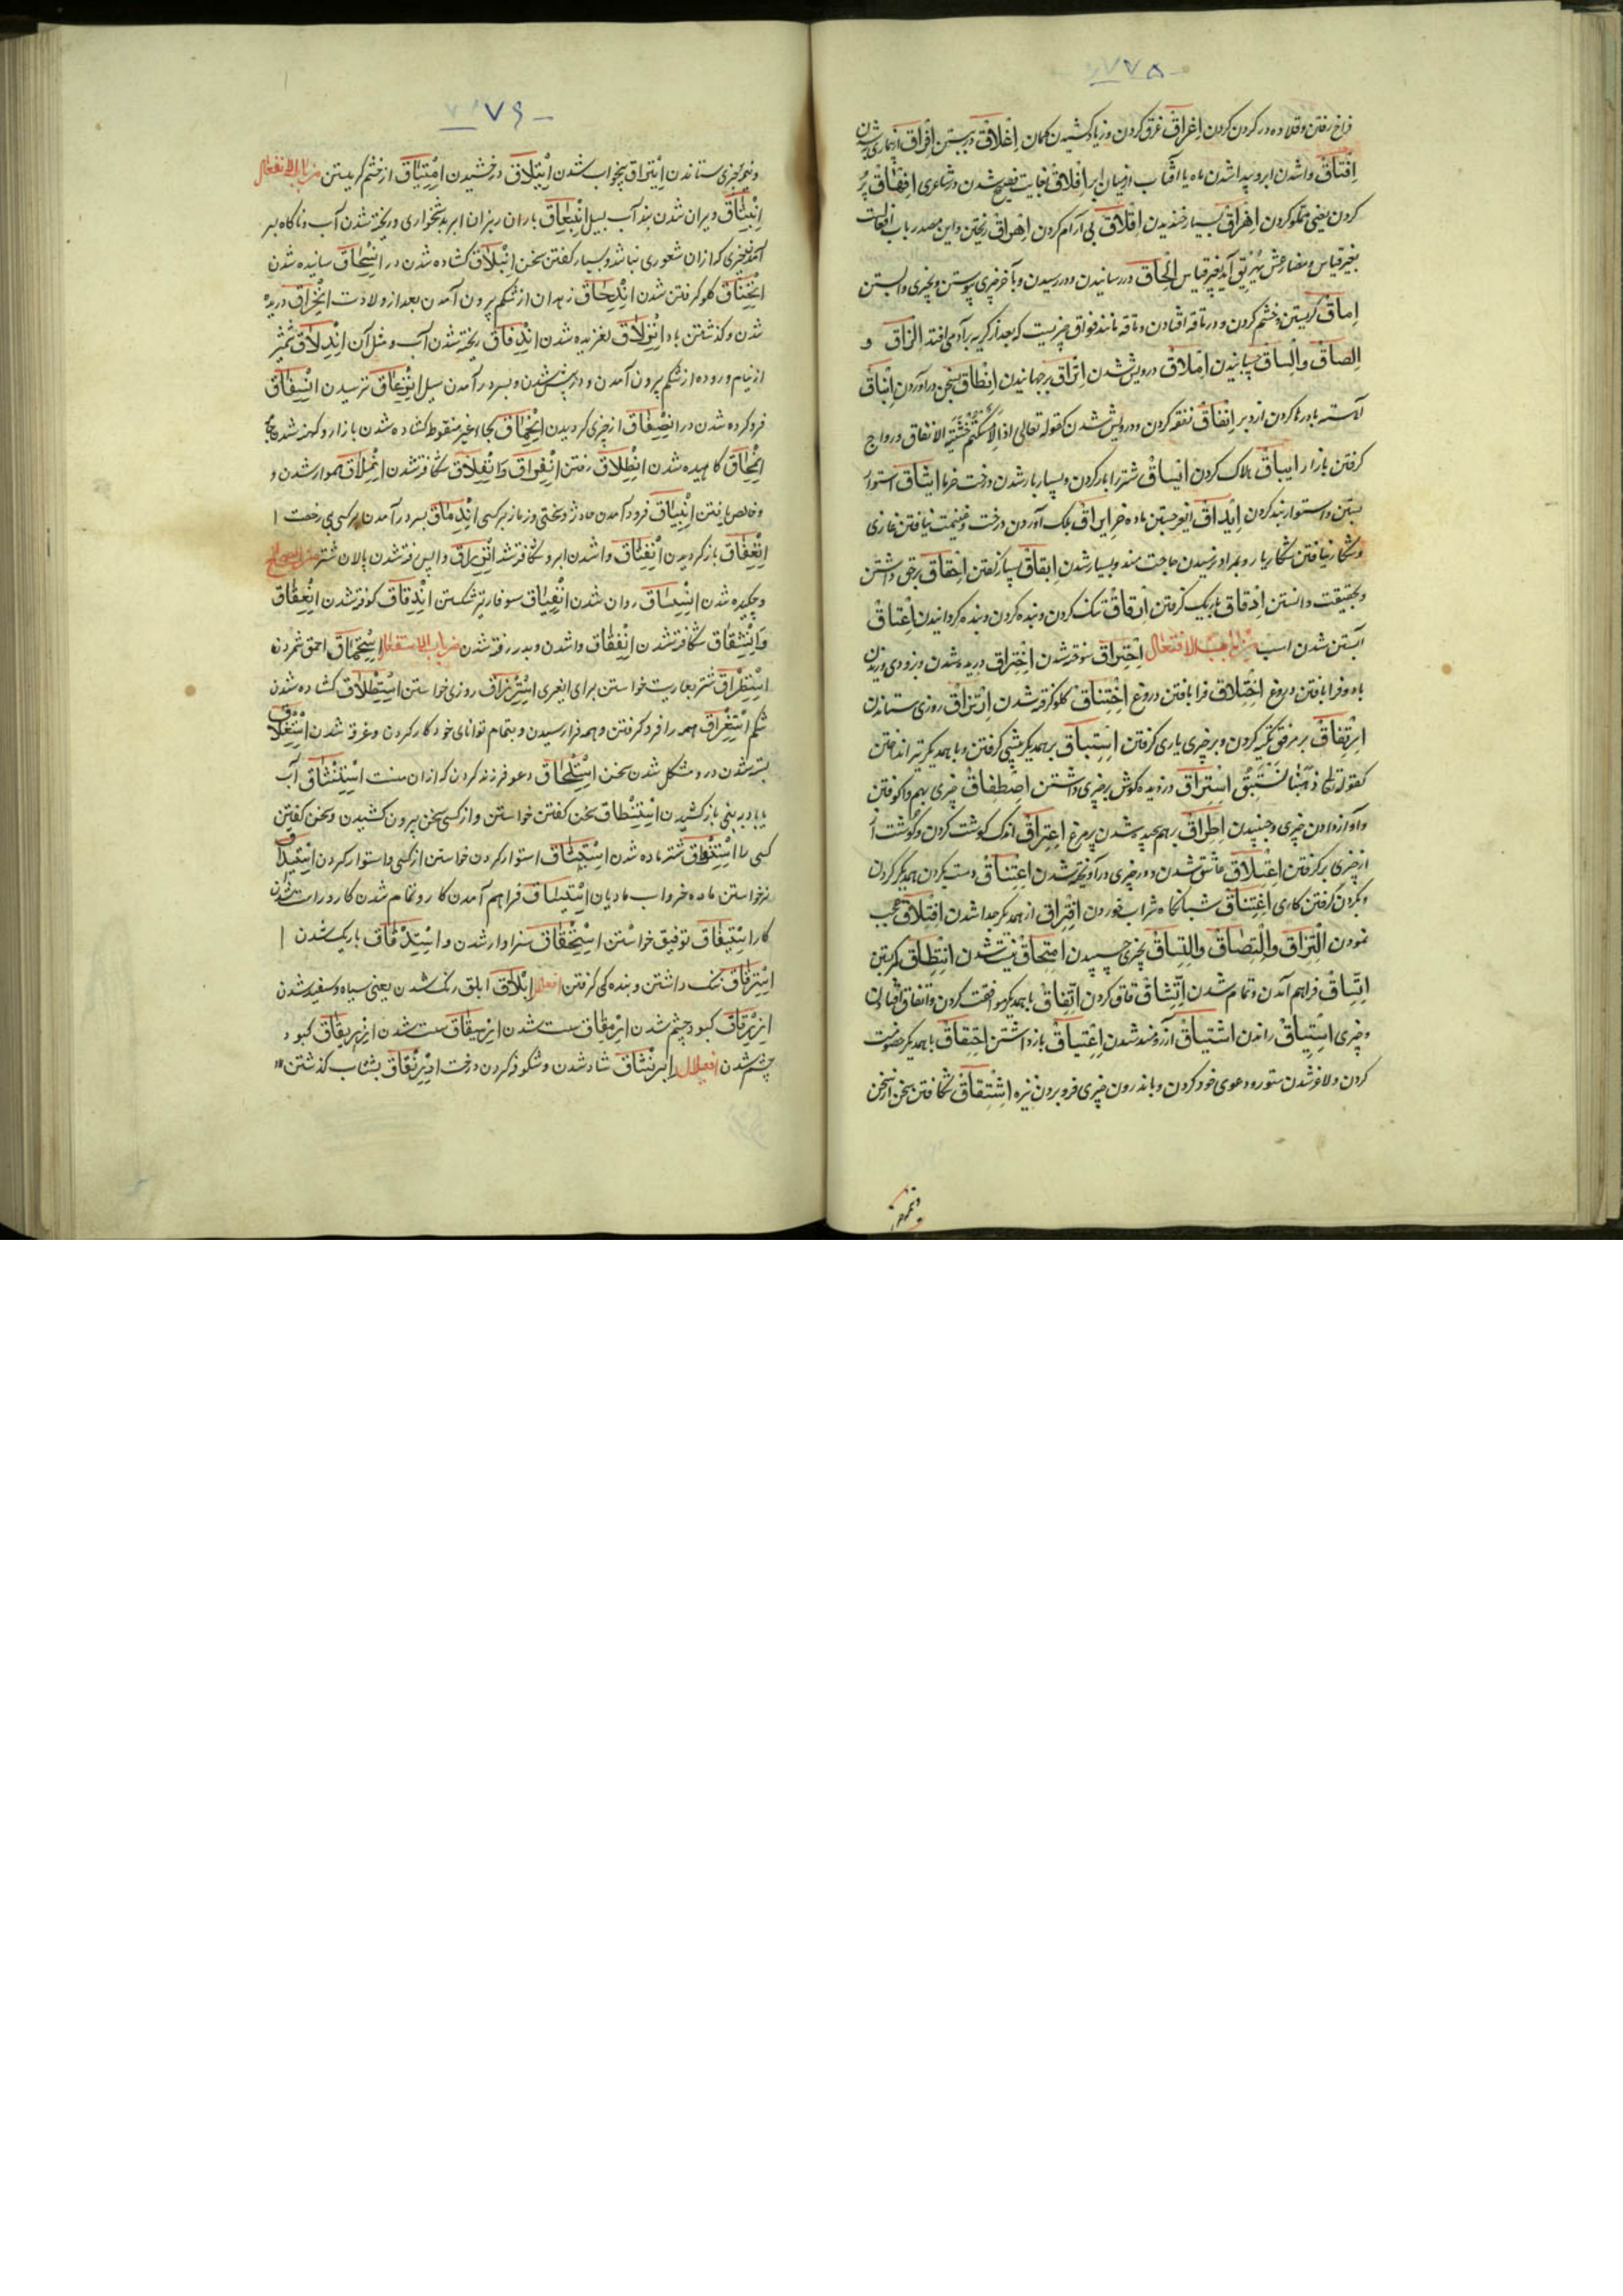 ۷۷۵
فراخ رفتن و قلاده در کردن کردن اِغراق غرق کردن و زیاد کشیدن کمان اِغلاق در بستن اِفراق از بیماری به شدن
واشدن ابر و پیدا شدن ماه یا آفتاب از میان ابر افلاق بغایت فصیح شدن در شاعری افهاق پُر
کردن یعنی مملو کردن اِهراق بسیار خندیدن اِقلاق بی آرام کردن اِهراق ریختن و این مصدر باب افعالست
بغیر قیاس و مضارعش یُهَرِیق آید بغیر قیاس اِلحاق در رسانیدن و در رسیدن و بآخر چیزی پیوستن و بچیزی وابستن
اِماق کریستن و خشم کردن و در ماقه افتادن و ماقه مانند فواق چیزیست که بعد از کریه برآدمی افتد الزاق و
الصاق و اِلساق چسپانیدن اِملاق درویش شدن اِنزاق برجهانیدن اِنطاق بسخن درآوردن
اِنفاق نفقه کردن و درویش شدن کقوله تعالی اذا لامسکتم خشیة الانفاق و رواج
کرفتن بازار ایباق هلاک کردن ایساق شتر را بار کردن و بسیار بار شدن درخت خرما ایثاق استوار
بستن و استوار بند کردن اِیداق ماده خر ایراق برک آوردن درخت و غنیمت نیافتن غازی
و شکار نیافتن شکاریار و بمراد نرسیدن حاجت مند و بسیار شدن اِبقاق بسیار کفتن اِحقاق برحق داشتن
و بحقیقت دانستن اِدقاق باریک کرفتن اِرقاق تنک کردن و بنده کردن و بنده کردانیدن اِعقاق
آبستن شدن اسب من باب الافتعال اِحتراق سوخته شدن اِختراق دریده شدن و زود وزیدن
باد و فرا بافتن دروغ اِختلاق فرا بافتن دروغ اِختناق کلو کرفته شدن اِرتزاق روزی ستاندن
اِرتفاق بر مرفق تکیه کردن و بر چیزی یاری کرفتن اِستباق بر همدیکر پیشی کرفتن و با همدیکر تیر انداختن
کقوله تعالی ذهبنا نستبق اِستراق دزدیده کوش بر چیزی داشتن اِصطفاق چیزی بهم وا کوفتن
و آواز دادن چیزی و جنبیدن اِطراق بر هم پیچیده شدن پر مرغ اِعتراق اندک کوشت کردن و کوشت از
از چیزی برکرفتن اِعتلاق عاشق شدن و در چیزی درآویخته شدن اِعتناق دست بکردن همدیکر کردن
و بکردن کرفتن کاری اِغتباق شبانکاه شراب خوردن اِفتراق از همدیکر جدا شدن اِفتلاق عجب
نمودن اِلتزاق و اِلتصاق و اِلتساق بچیزی چسپیدن اِمتحاق نیست شدن اِنتطاق کمر بستن
اِتساق فراهم آمدن و تمام شدن اِتفاق با همدیکر موافقت کردن و اتفاق افتادن
و چیزی اِستیاق راندن اِشتیاق آرزومند شدن اِعتیاق باز داشتن اِحتقاق با همدیکر خصومت
کردن و لاغر شدن ستور و دعوی خود کردن و باندرون چیزی فرو بردن نیزه اِشتقاق شکافتن سخن از سخن
۷۷۶
و نیم چیزی ستاندن اِیتراق بیخواب شدن اِیتلاق درخشیدن اِمتیاق از خشم کریستن من باب الانفعال
اِنبثاق ویران شدن بند آب بسیل اِنبعاق باران ریزان ابر بدشخواری و ریخته شدن آب و ناکاه بر
آمدن چیزی که از آن شعوری نباشد و بسیار کفتن سخن اِنبلاق کشاده شدن در اِنسحاق سائیده شدن
اِنخناق کلو کرفتن شدن اِندحاق زهدان از شکم بیرون آمدن بعد از ولادت اِنخراق دریده
شدن و کذشتن باد اِنزلاق لغزیده شدن اِندفاق ریخته شدن آب و مثل آن اِندلاق شمشیر
از نیام و روده از شکم بیرون آمدن و در پیش شدن و بسر درآمدن سیل اِنزعاق ترسیدن
فرو کرده شدن در از چیزی کردیدن اِنحماق بحاء غیر منقوط کشاده شدن بازار و کهنه شدن جامه
اِنمحاق کاهیده شدن اِنطلاق رفتن اِنفراق و اِنفلاق شکافته شدن اِنملاق هموار شدن و
و خلاص یافتن اِنبیاق فرود آمدن حادثه و سختی و زمانه بر کسی اِندماق بسر درآمدن بر کسی بی رخصت
باز کردیدن اِنفتاق واشدن ابر و شکافته شدن واپس رفته شدن پالان شتر
و چکیده شدن اِنسیاق روان شدن اِنفیاق سوفار تیر شکستن اِندقاق کوفته شدن اِنعقاق
و اِنشقاق شکافته شدن اِنفقاق واشدن و بدر رفته شدن من باب الاستفعال اِستحماق احمق شمردن
اِستطراق شتر بعاریت خواستن برای ایغری اِسترزاق روزی خواستن اِستطلاق کشاده شدن
شکم اِستغراق همه را فرو کرفتن و همه فرا رسیدن و بتمام توانای خود کار کردن و غرق شدن اِستغلاق
بسته شدن در و مشکل شدن سخن اِستلحاق دعوی فرزند کردن که از آن منست اِستنشاق آب
یا باد در بینی باز کشیدن اِستنطاق سخن کفتن خواستن و از کسی سخن بیرون کشیدن و سخن کفتن
کسی را اِستنواق شتر ماده شدن اِستیثاق استوار کردن خواستن از کسی و استوار کردن اِستیداق
نر خواستن ماده خر و اسب مادیان اِستیساق فراهم آمدن کار و تمام شدن کار و راست شدن
کار اِستیفاق توفیق خواستن اِستحقاق سزاوار شدن و اِستدقاق باریک شدن
اِسترقاق تنک داشتن و بنده کی کرفتن افعلال اِبلاق ابلق رنک شدن یعنی سیاه و سفید شدن
اِزرقاق کبود چشم شدن اِرمقاق سست شدن سست شدن اِزریقاق کبود
چشم شدن افعنلال اِبرنشاق شاد شدن و شکوفه کردن درخت اِدرنفاق بشتاب کذشتن